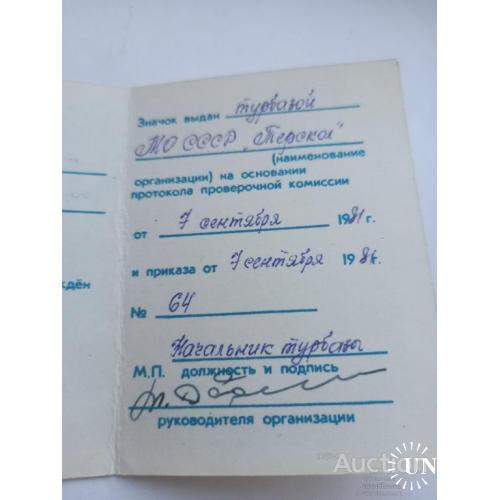 Значок выдан турбазой
МО СССР „Терскол"
(наименование
организации) на основании
протокола проверочной комиссии
от 7 сентября 1981г.
и приказа от 7 сентября 198 г.
№ 64
Начальник турбазы
М.П. должность и подпись
руководителя организации
ждён
Auction
UN